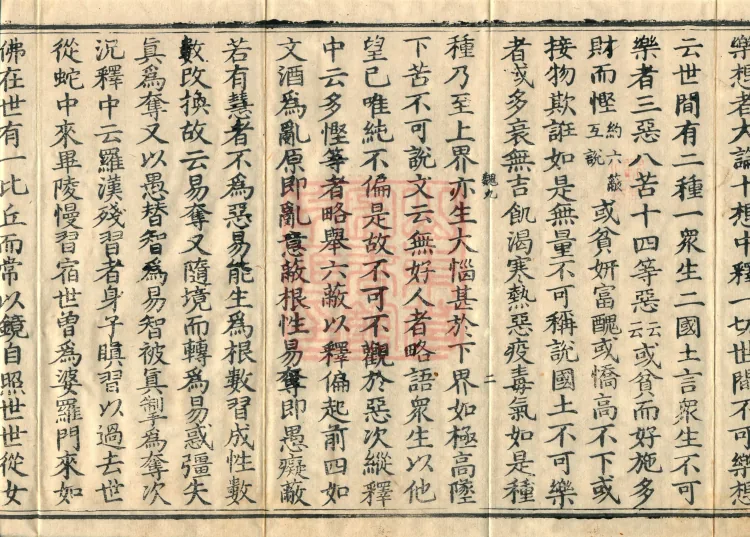 樂想者大論十想中釋一切世間不可樂想
云世間有二種一衆生二國土言衆生不可
樂者三惡八苦十四等惡云云或貧而好施多
財而慳約六蔽互說或貧妍富醜或憍高不下或
接物欺誑如是無量不可稱說國土不可樂
者或多衰無吉飢渴寒熱惡疫毒氣如是種
二
種乃至上界亦生大惱甚於下界如極高墜
下苦不可說文云無好人者略語衆生以他
望已唯純不偏是故不可不觀於惡次縱釋
中云多慳等者略舉六蔽以釋偏起前四如
文酒爲亂原即亂意蔽根性易奪即愚癡蔽
若有慧者不爲惡易能生爲根數習成性數
數改換故云易奪又隨境而轉爲易惑彊失
眞爲奪又以愚替智爲易智被眞制爲奪次
況釋中云羅漢殘習者身子瞋習以過去世
從蛇中來畢陵慢習宿世曾爲婆羅門來如
佛在世有一比丘而常以鏡自照世世從女